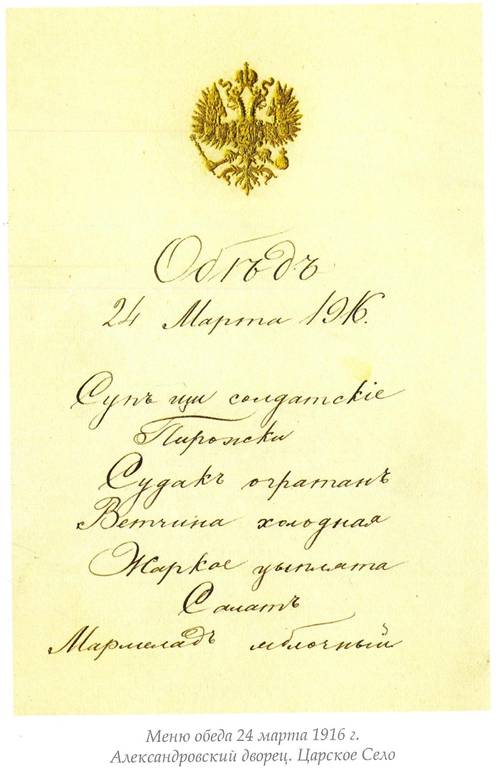 Обѣдъ
24 Марта 1916.
Супъ щи солдатскіе
Пирожки
Судакъ огратанъ
Ветчина холодная
Жаркое цыплята
Салатъ
Мармеладъ яблочный
Меню обеда 24 марта 1916 г.
Александровский дворец. Царское Село